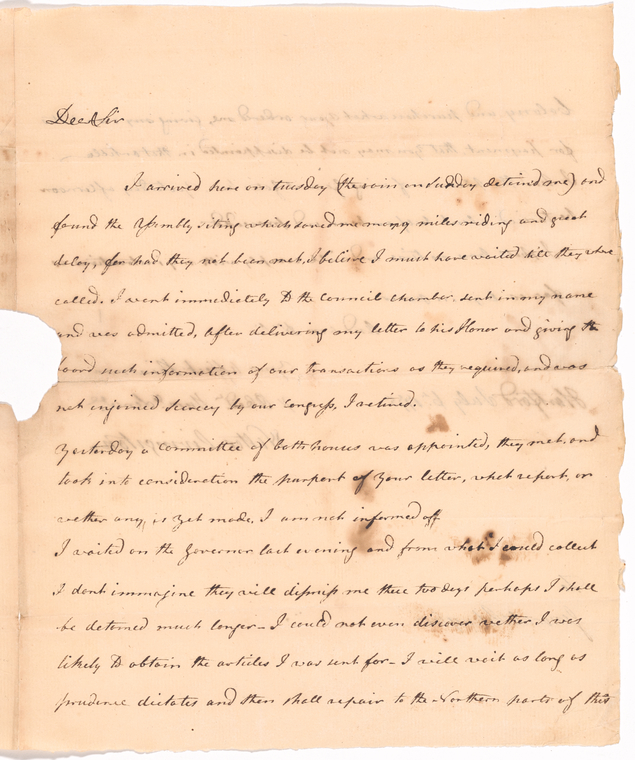 Dear Sir
I arrived here on tuesday (the rain on Sunday detained me) and
found the Assembly siting which saved me many miles riding and great
delay, for had they not been met, I believe I must have waited till they where
called. I went immediately to the Council chamber, sent in my name
and was admitted, After delivering my letter to his Honor and giving the
board such information of our transactions as they required, and was
not injoined secrecy by our Congress, I retired.
Yesterday a Committee of both houses was appointed, they met, and
took into consideration the purport of your letter, what report, or
wether any, is yet made, I am not informed off
I waited on the Governor last evening and from what I could collect
I dont immagine they will dismiss me these two days perhaps I shall
be detained much longer – I could not even discover wether I was
likely to obtain the articles I was sent for – I will wait as long as
prudence dictates and then shall repair to the Northern parts of this